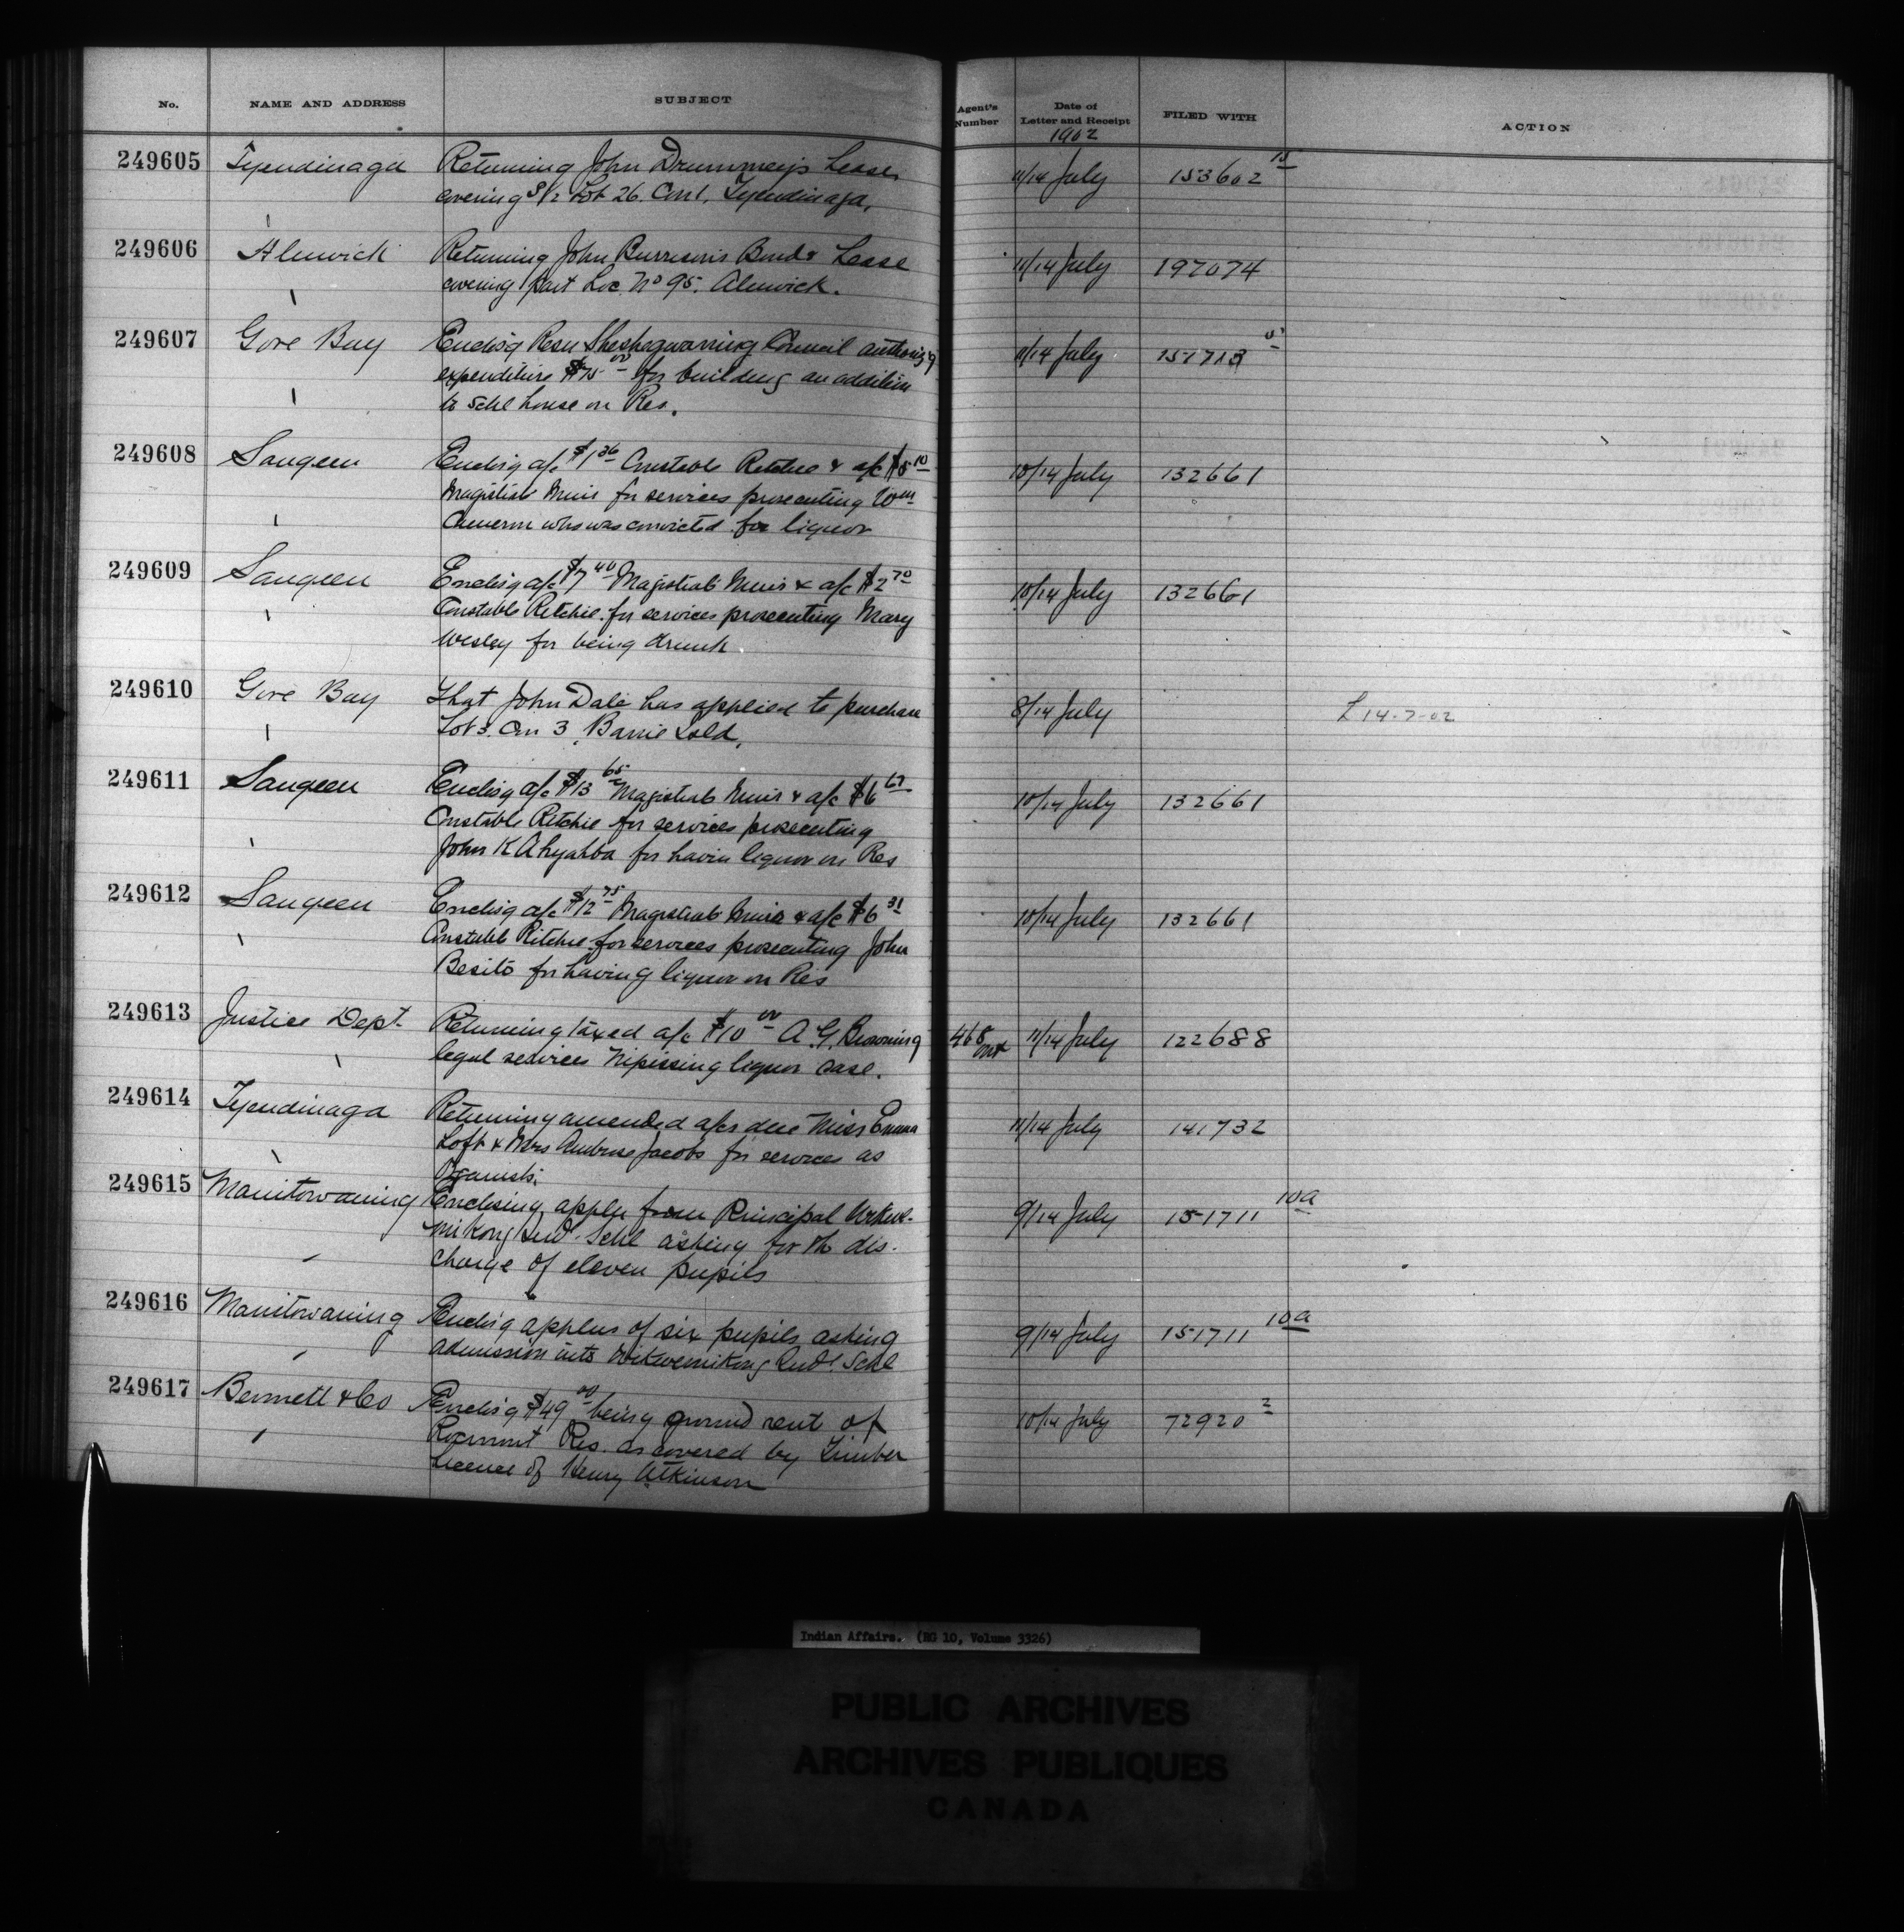 No. NAME AND ADDRESS SUBJECT Agent's Number Date of Letter and Receipt FILED WITH ACTION
1902
249605 Tyendinaga Returning John Drummey's Lease 11/14 July 153602 15
covering S 1/2 Lot 26. Con 1. Tyendinaga,
249606 Alnwick Returning John Burrison's Bond & Lease 11/14 July 197074
covering part Loc. No 95. Alnwick.
249607 Gore Bay Enclos'g Resn Sheshegwaning Council authoris'g 11/14 July 151713 5
expenditure $75 00 for building an addition
to Schl house on Res.
249608 Saugeen Enclos'g a/c $1 36 Constable Ritchie & a/c $5 10 10/14 July 132661
Magistrate Muir for services prosecuting Wm
Cameron who was convicted for liquor
249609 Saugeen Enclos'g a/c $7 40 Magistrate Muir & a/c $2 70 10/14 July 132661
Constable Ritchie for services prosecuting Mary
Wesley for being drunk.
249610 Gore Bay That John Dale has applied to purchase 8/14 July L 14-7-02
Lot 3. Con 3, Barrie Isld,
249611 Saugeen Enclos'g a/c $13 65 Magistrate Muir & a/c $6 67 10/14 July 132661
Constable Ritchie for services prosecuting
John K Ahyahba for havin liquor on Res
249612 Saugeen Enclos'g a/c $12 75 Magistrate Muir & a/c $6 31 10/14 July 132661
Constable Ritchie for services prosecuting John
Besito for having liquor on Res
249613 Justice Dept. Returning taxed a/c $10 00 A. G. Browning 468 Ont 11/14 July 122688
legal services Nipissing liquor case.
249614 Tyendinaga Returning amended a/cs due Miss Emma 11/14 July 141732
Loft & Mrs Ambrose Jacobs for services as
Organists.
249615 Manitowaning Enclosing appln from Principal Wikwe- 9/14 July 151711 10a
mikong Indl. Schl asking for the dis-
charge of eleven pupils
249616 Manitowaning Enclos'g applns of six pupils asking 9/14 July 151711 10a
admission into Wikwemikong Indl. Schl
249617 Bennett & Co Enclos'g $49 00 being ground rent of 10/14 July 72920 2
Res. as covered by Timber
Licence of Henry Atkinson
Indian Affairs. (RG 10, Volume 3326)
PUBLIC ARCHIVES
ARCHIVES PUBLIQUES
CANADA